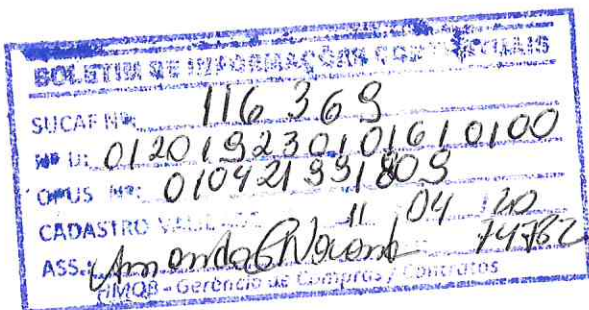 BOLETIM DE INFORMAÇÕES CONTRATUAIS
SUCAF Nº: 116 369
Nº U: 01201923010161 0100
OPUS Nº: 010421991809
CADASTRO 11 04 20
ASS.: Amanda 74782
HMOB - Gerência de Compras / Contratos